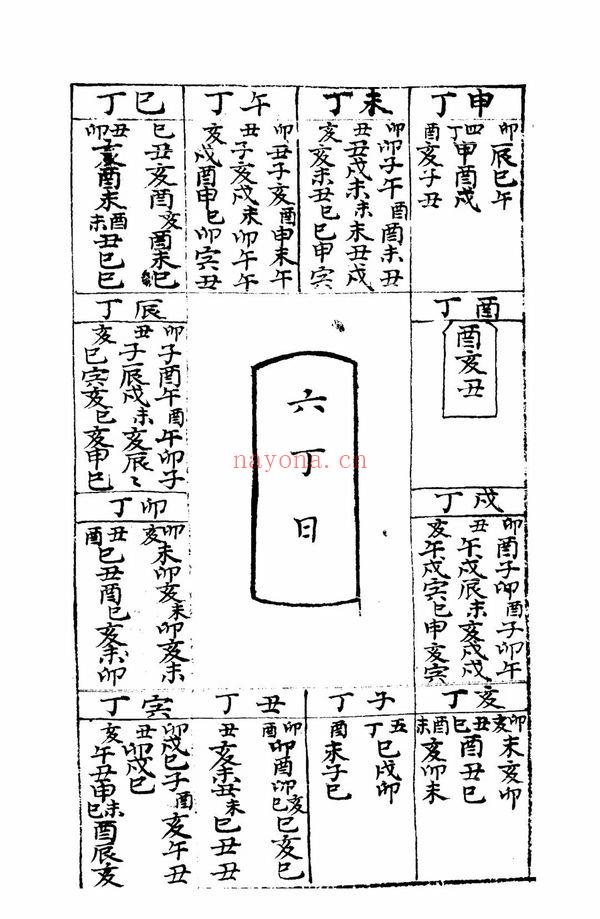 申丁
卯辰巳午
四丁申酉戌
酉亥子丑
未丁
卯卯子午酉酉未丑
丑丑戌未未未丑戌
亥亥未丑巳巳申寅
午丁
卯丑子亥酉申未午
丑子亥戌未卯午午
亥戌酉申巳卯寅丑
巳丁
巳丑亥酉亥酉未巳
丑亥酉未酉丑巳巳
卯未
酉丁
酉亥丑
辰丁
卯子酉午酉午卯子
丑子辰戌未亥辰
亥巳寅亥巳亥申巳
六丁日
nayona.cn
戌丁
卯酉子卯酉子卯午
丑午戌辰未亥戌戌
亥午戌寅巳申亥寅
卯丁
卯未卯亥未卯亥未
亥
丑巳丑酉巳亥未卯
酉
亥丁
卯未亥卯
亥
丑酉丑巳
巳
酉亥卯未
未
子丁
五丁巳戌卯
酉未子巳
丑丁
卯卯酉卯亥巳亥巳
酉巳
丑亥未丑未巳丑丑
寅丁
卯戌巳子酉亥午丑
丑卯戌巳
亥午丑申未酉辰亥
巳